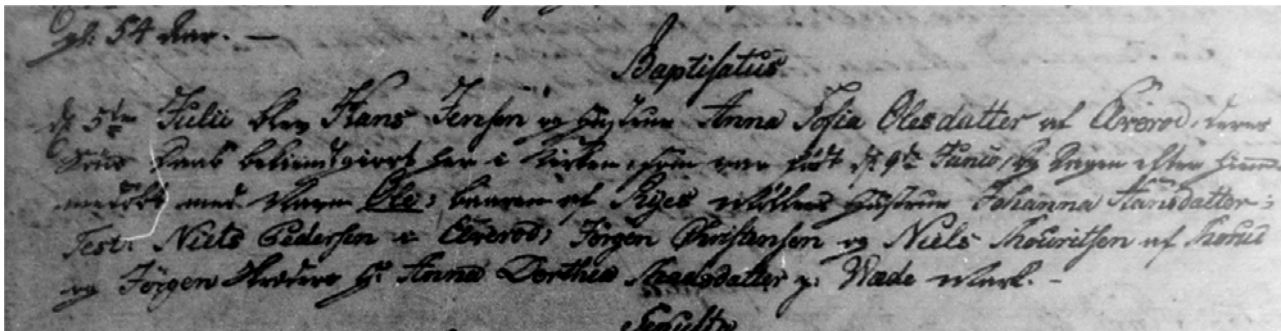 gl. 54 Aar. —
Baptisatus
d. 5te Julii blev Hans Jensen og Hustrue Anna Sofia Olesdatter af Averød, deres
Søns Daab bekiendtgiort her i Kirken, som var født d. 9de Junii, og Dagen efter hiemme
med Navn Ole; baaren af Kyes Møllers Hustrue Johanna Hansdatter;
Test: Niels Pedersen i Averød, Jørgen Christensen og Niels Mouritsen af
og Jørgen H: Anna Dorthea Madsdatter p: Wade Mark. —
Sepulta